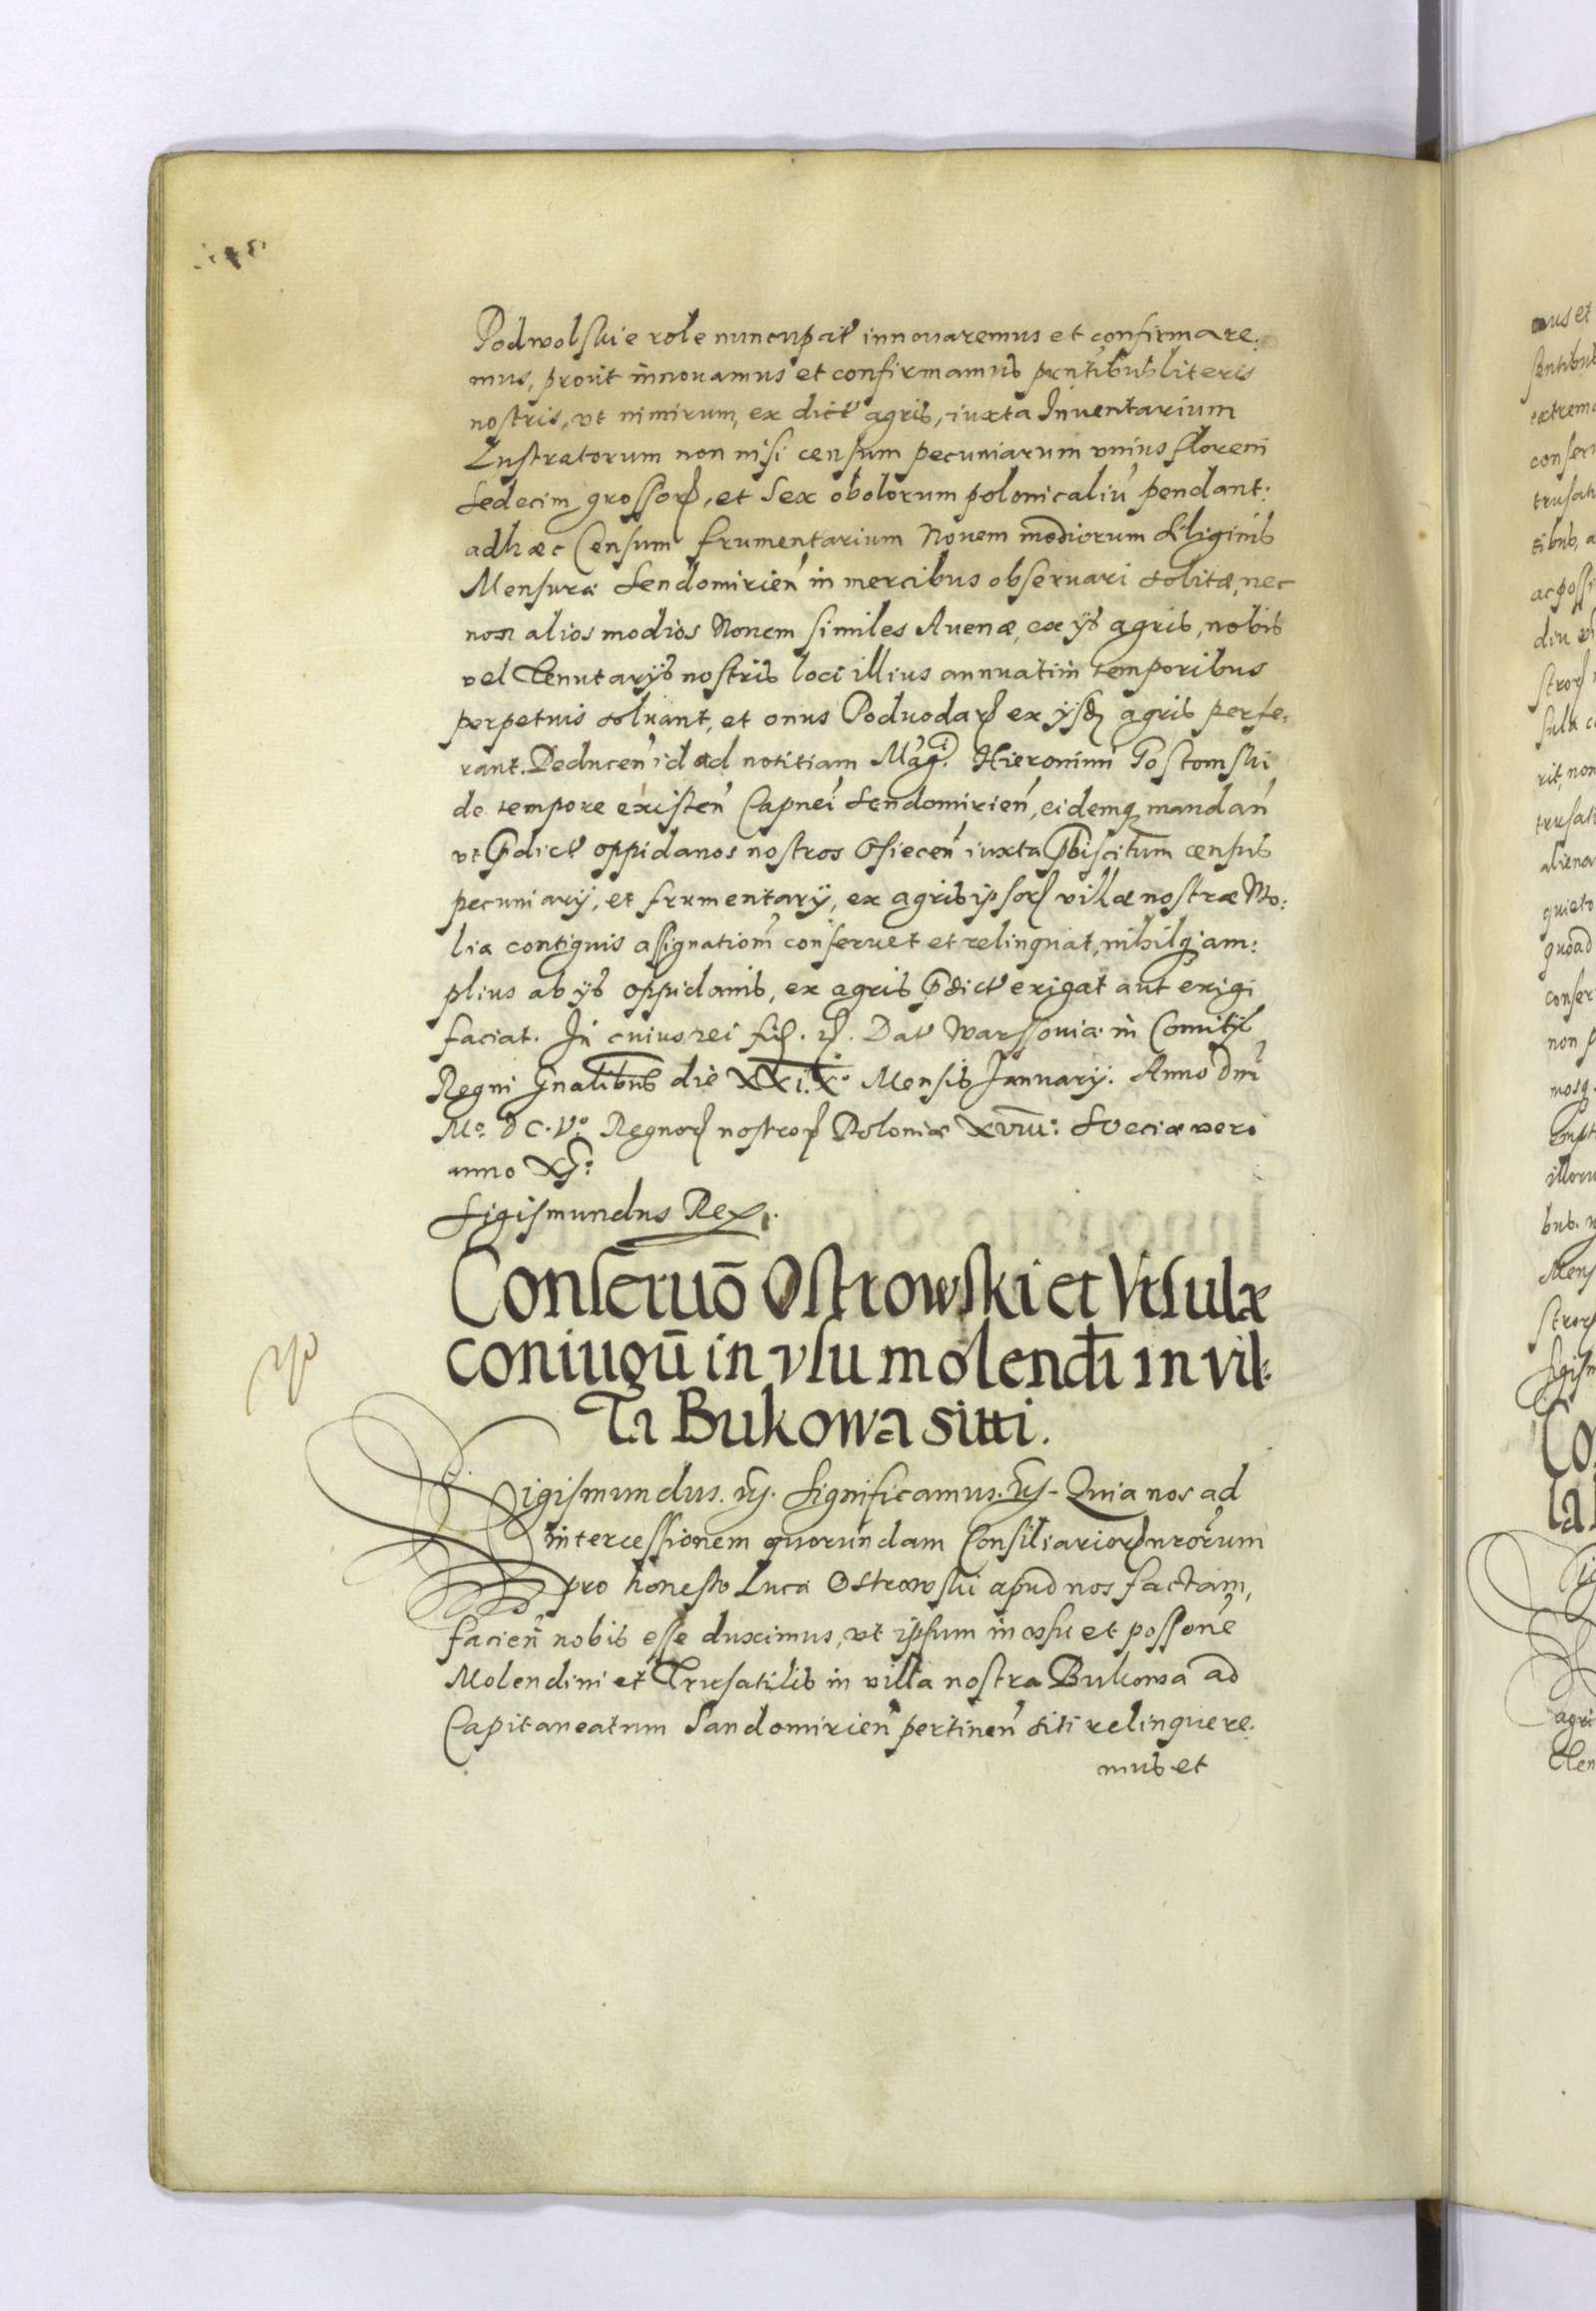 Podwolskie role nuncupat innouaremus et confirmare:
mus, prout innouamus et confirmamus pntibus literis
nostris, vt nimirum, ex dict agris, iuxta Inuentarium
Lustratorum non nisi censum pecuniarum vnius floreni
sedecim grossor, et sex obolorum polonicaliu pendant:
ad haec Censum frumentarium Nouem modiorum siliginis
Mensura Sendomirien in mercibus obseruari solitæ, nec
non alios modios Nouem similes Auenæ, ex ijs agris, nobis
vel Tenutarijs nostris loci illius annuatim temporibus
perpetuis soluant, et onus Poduodar ex ijsd agris perfe:
rant. Deducen id ad notitiam Mag.ci Hieronimi Gostomski
de tempore existen Capnei Sendomirien, eidemq mandan
vt pdict oppidanos nostros Osiecen iuxta census
pecuniarij, et frumentarij, ex agris ipsor villæ nostræ Wo:
lia contiguis assignationem conseruet et relinquat, nihilq am:
plius ab ijs oppidanis, ex agris pdict exigat aut exigi
faciat. In cuius rei fid. Dat Warssouiæ in Comitijs
Regni gnalibus die XXIX.o Mensis Januarij. Anno dni
Mo. DC.Vo. Regnor nostror Poloniæ XVIII: Sveciæ vero
anno XI:
Sigismundus Rex.
Conseruo Ostrowski et Vrsulæ
coniugū in vsu molendi in vil:
la Bukowa siti.
Sigismundus. Significamus. Quia nos ad
intercessionem quorundam Consiliarior nrorum
pro honesto Luca Ostrowski apud nos factam,
facien nobis esse duximus, vt ipsum in vsu et possone
Molendini et Trusatilis in villa nostra Bukowa ad
Capitaneatum Sandomirien pertinen siti relinquere:
mus et